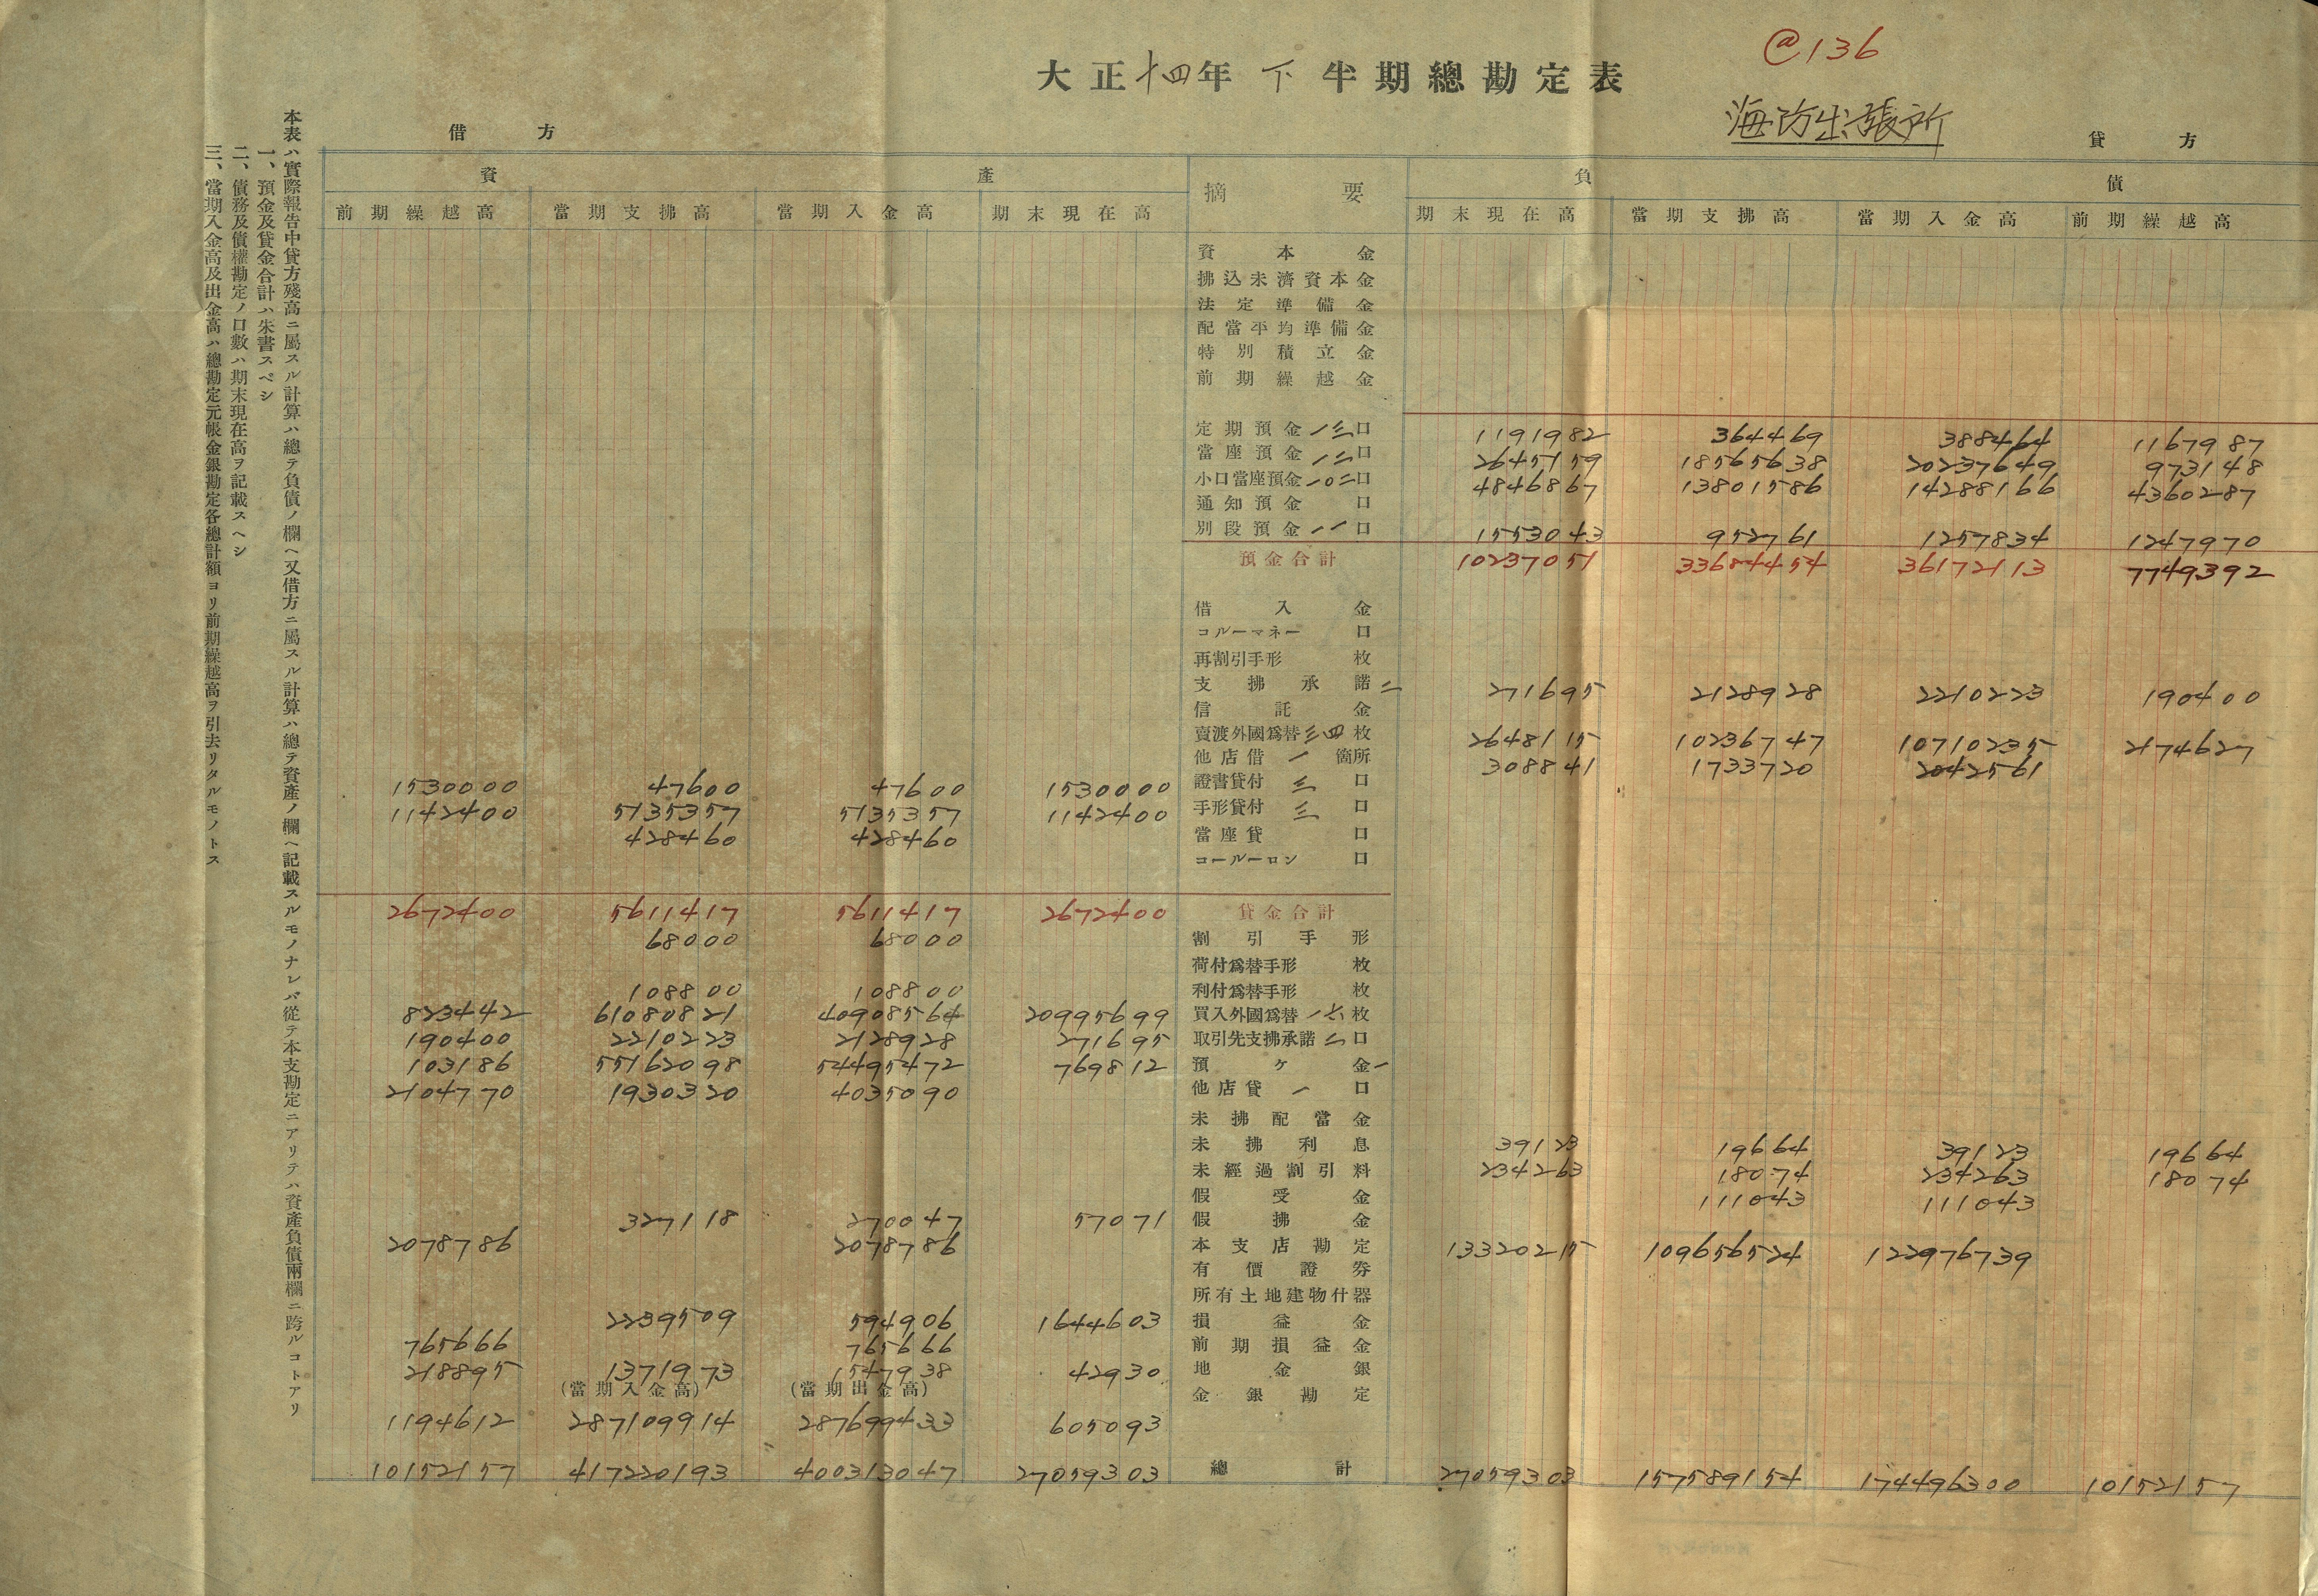 @136
大正十四年下半期總勘定表
海防出張所
借方 貸方
資產 摘要 負債
前期繰越高 當期支拂高 當期入金高 期末現在高 期末現在高 當期支拂高 當期入金高 前期繰越高
資本金
拂込未濟資本金
法定準備金
配當平均準備金
特別積立金
前期繰越金
定期預金一三口 1191982 364469 388464 1167987
當座預金一二口 2645159 18565638 20237649 973148
小口當座預金一〇二口 4846867 13801586 14288166 4360287
通知預金 口
別段預金一一口 1553043 952761 1257834 1247970
預金合計 10237051 33684454 36172113 7749392
借入金
コルーマネー 口
再割引手形 枚
支拂承諾二 271695 2128928 2210223 190400
信託金
賣渡外國爲替三四枚 2648115 10236747 10710235 2174627
他店借一箇所 308841 1733720 2042561
1530000 47600 47600 1530000 證書貸付三口
1142400 5135357 5135357 1142400 手形貸付三口
428460 428460 當座貸 口
コールーロン 口
2672400 5611417 5611417 2672400 貸金合計
68000 68000 割引手形
荷付爲替手形 枚
108800 108800 利付爲替手形 枚
823442 61080821 40908564 20995699 買入外國爲替一六枚
190400 2210223 2128928 271695 取引先支拂承諾二口
103186 55162098 54495472 769812 預ケ金一
2104770 1930320 4035090 他店貸一口
未拂配當金
未拂利息 39123 19664 39123 19664
未經過割引料 234263 18074 234263 18074
假受金 111043 111043
327118 270047 57071 假拂金
2078786 2078786 本支店勘定 13320215 109656524 122976739
有價證券
所有土地建物什器
2239509 594906 1644603 損益金
765666 765666 前期損益金
218895 1371973 1547938 42930 地金銀
(當期入金高) (當期出金高) 金銀勘定
1194612 287109914 287699433 605093
10152157 417220193 400313047 27059303 總計 27059303 157589154 174496300 10152157
本表ハ實際報告中貸方殘高ニ屬スル計算ハ總テ負債ノ欄ヘ又借方ニ屬スル計算ハ總テ資產ノ欄ヘ記載スルモノナレバ從テ本支勘定ニアリテハ資產負債兩欄ニ跨ルコトアリ
一、預金及貸金合計ハ朱書スベシ
二、債務及債權勘定ノ口數ハ期末現在高ヲ記載スヘシ
三、當期入金高及出金高ハ總勘定元帳金銀勘定各總計額ヨリ前期繰越高ヲ引去リタルモノトス